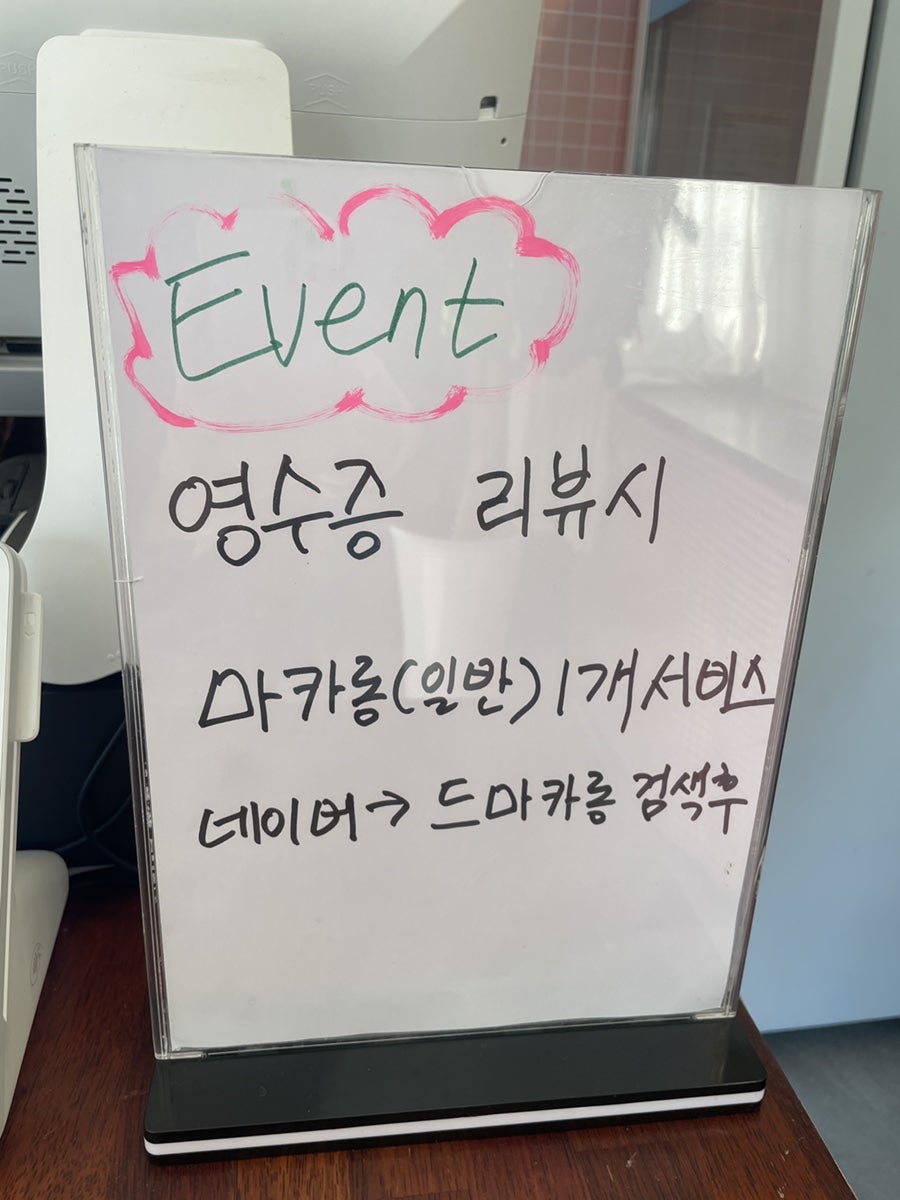 PUSH
Event
영수증 리뷰시
마카롱(일반) 1개 서비스
네이버→ 드마카롱 검색후